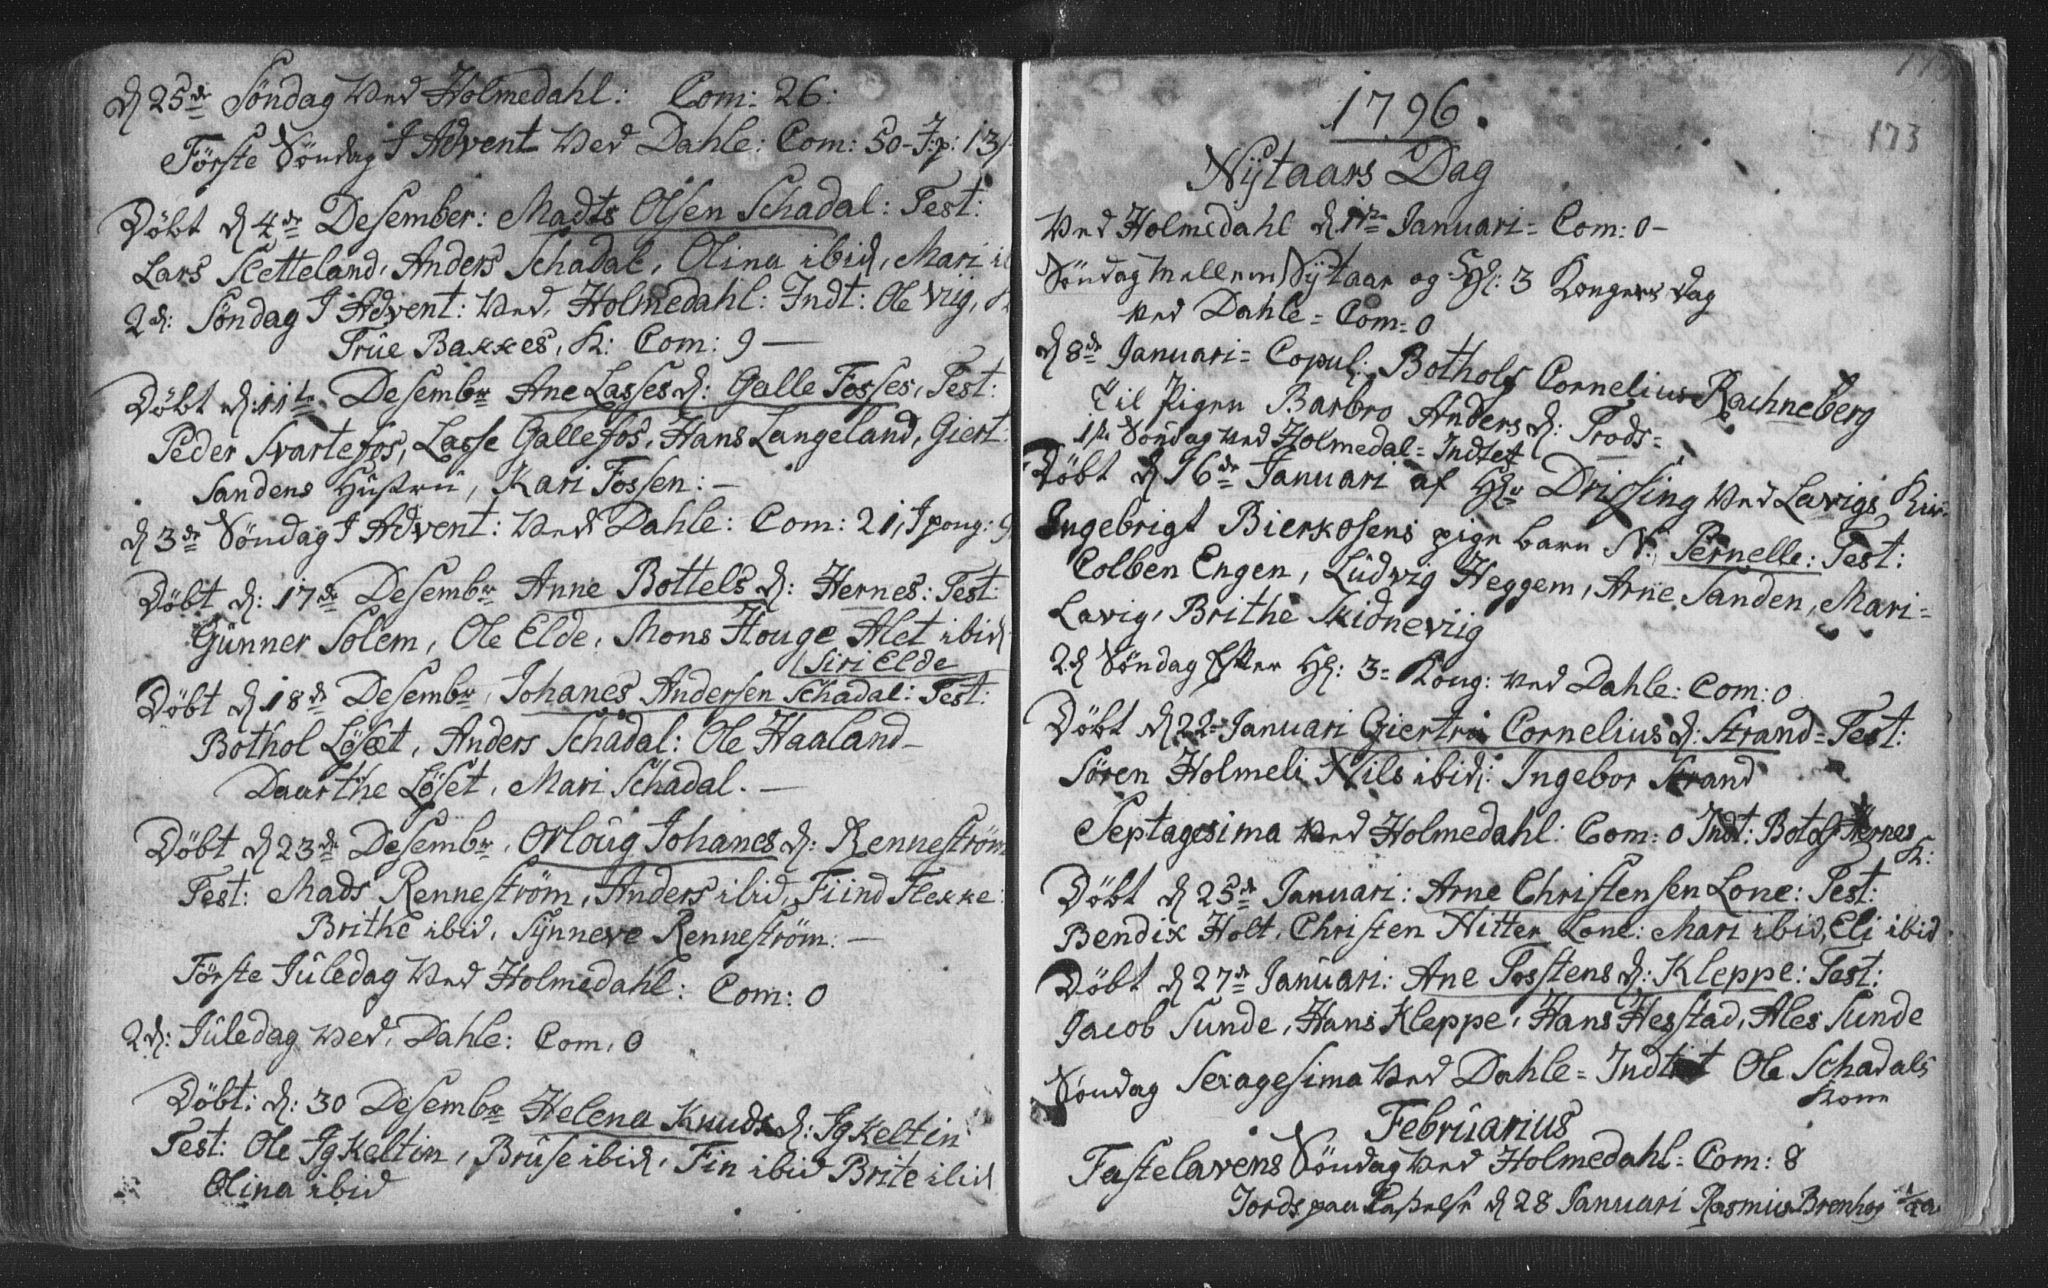 d 25de Søndag Ved Holmedahl: Com: 26:
Förste Söndag J Advent Ved Dahle: Com: 50 - J:p: 13
Döbt d 4de Desember: Madts Olsen Schadal: Test:
Lars Sletteland, Anders Schadal, Olina ibid, Mari
2d: Søndag J Advent: Ved Holmedahl: Indt: Ole Viig, K:
Trüe Bakkes, K: Com: 9 —
Döbt d: 11te Desembr Ane Lasses d: Galle Fosses, Test:
Peder Svartefos, Lasse Gallefos, Hans Langeland, Giert:
Sandens Hustrü, Kari Fossen: —
d 3de Søndag J Advent: Ved Dahle: Com: 21, J pong: 9
Döbt d: 17de Desembr Anne Bottels d: Hernes: Test:
Günner Solem, Ole Elde, Mons Houge Alet ibid
Siri Elde
Döbt d 18d Desembr, Johanes Andersen Schadal: Test:
Bothol Löset, Anders Schadal: Ole Haaland —
Daarthe Löset, Mari Schadal. —
Döbt d 23de Desembr, Orloug Johanes d: Renneström
Test: Mads Renneström, Anders ibid, Fiind Flekke:
Brithe ibid, Synneve Renneström: —
Förste Jüledag Ved Holmedahl: Com: 0
2d: Jüledag Ved, Dahle: Com: 0
Döbt: d: 30 Desembr Helena Knuds d: Igkeltin
Test: Ole Igkeltin, Brüse ibid, Fin ibid Brite ibid
Olina ibid
173
1796.
Nÿtaars Dag
Ved Holmedahl d 1te Januari = Com: 0 —
Søndag Mellem Nÿtaar og Hl: 3 Kongers Dag
Ved Dahle = Com: 0
d 8de Januari = Copul: Botholf Cornelius Rachneberg
til Pigen Barbro Anders d: Prods =
1te Søndag Ved Holmedal = Indtet
Döbt d 16de Januari af Hr Drissing Ved Lavigs
Ingebrigt Bierkosens pige barn N: Pernelle: Test:
Colben Engen, Lüdvig Heggem, Arne Sanden, Mari =
Lavig, Brithe Skidneviig
2d Søndag Efter Hl: 3 = Kong: Ved Dahle: Com: 0
Döbt d 22 = Januari Giertrü Cornelius d: Strand = Test:
Sören Holmeli Nils ibid: Ingebor Strand
Septagesima Ved Holmedahl: Com: 0 Indt: Botolf Hernes
K:
Döbt d 25de Januari: Arne Christensen Lone: Test:
Bendix Holt, Christen Nitter Lone: Mari ibid, Eli ibid
Döbt d 27de Januari: Ane Tosstens d: Kleppe: Test:
Jacob Sunde, Hans Kleppe, Hans Hesstad, Ales Sunde
Søndag Sexagesima Ved Dahle = Indtet Ole Schadals
Kone
Februarius
Fastelavens Søndag Ved Holmedahl = Com: 8
Jordspaa Kastelse d 28 Januari Rasmus Brenhog